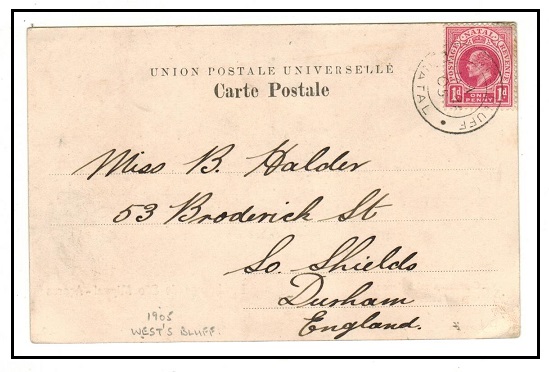 UNION POSTALE UNIVERSELLE
Carte Postale
POSTAGE NATAL REVENUE
1d ONE PENNY 1d
BLUFF
NATAL
Miss B. Halder
53 Broderick St
So. Shields
Durham
England.
1905
WEST'S BLUFF.